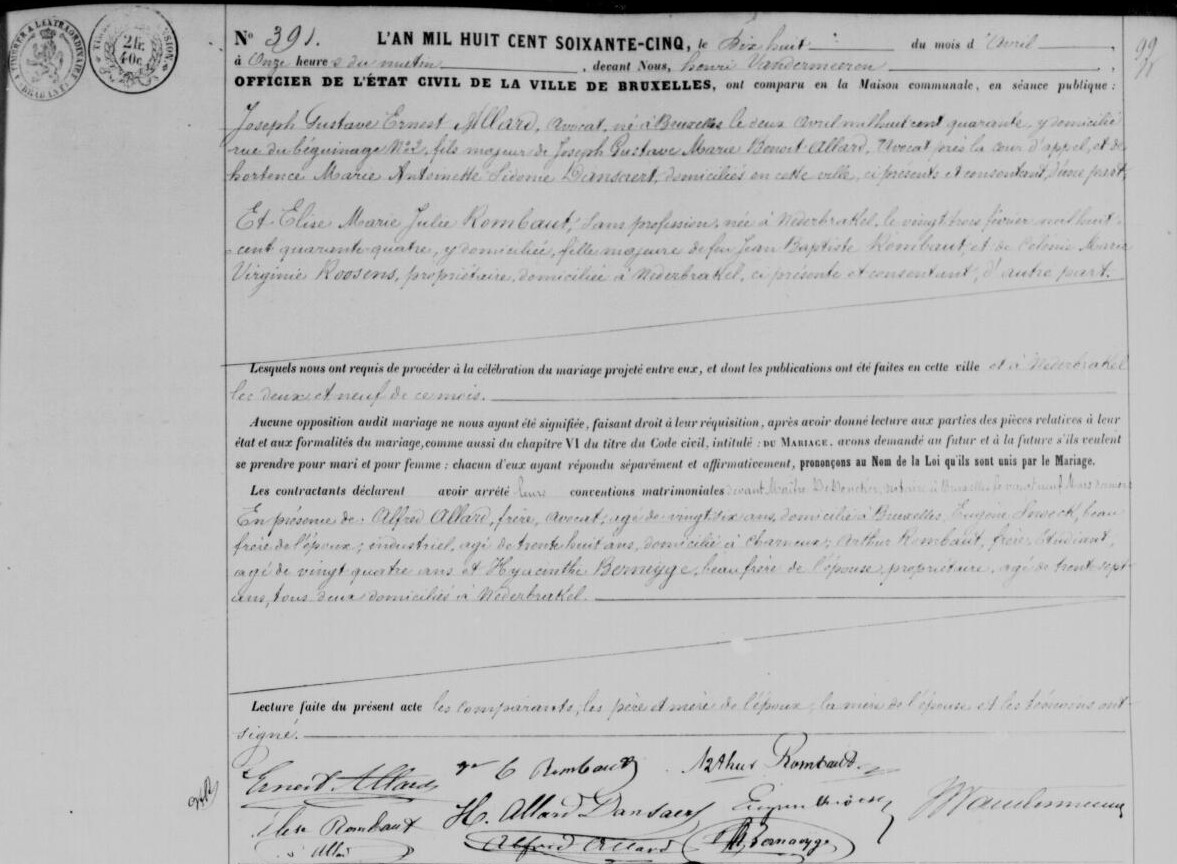 TIMBRE A L'EXTRAORDINAIRE
BRABANT
2fr. 40c.
99
Nº 391. L'AN MIL HUIT CENT SOIXANTE-CINQ, le Dix huit du mois d'Avril,
à Onze heures du matin, devant Nous, henri Vandermeeren,
OFFICIER DE L'ÉTAT CIVIL DE LA VILLE DE BRUXELLES, ont comparu en la Maison communale, en séance publique :
Joseph Gustave Ernest Allard, Avocat, né à Bruxelles le deux Avril mil huit cent quarante, y domicilié
rue du béguinage Nº2, fils majeur de Joseph Gustave Marie Benoit Allard, Avocat près la cour d'appel, et de
hortence Marie Antoinette Sidonie Dansaert, domiciliés en cette ville, ci présents et consentant, d'une part,
Et Elise Marie Julie Rombaut, sans profession, née à Nederbrakel, le vingt trois février mil huit
cent quarante quatre, y domiciliée, fille majeure de feu Jean Baptiste Rombaut, et de Colonie Marie
Virginie Roosens, propriétaire, domiciliée à Nederbrakel, ci présente et consentant, d'autre part.
Lesquels nous ont requis de procéder à la célébration du mariage projeté entre eux, et dont les publications ont été faites en cette ville et à Nederbrakel
les deux et neuf de ce mois.
Aucune opposition audit mariage ne nous ayant été signifiée, faisant droit à leur réquisition, après avoir donné lecture aux parties des pièces relatives à leur
état et aux formalités du mariage, comme aussi du chapitre VI du titre du Code civil, intitulé : DU MARIAGE, avons demandé au futur et à la future s'ils veulent
se prendre pour mari et pour femme : chacun d'eux ayant répondu séparément et affirmativement, prononçons au Nom de la Loi qu'ils sont unis par le Mariage.
Les contractants déclarent avoir arrêté leurs conventions matrimoniales devant Maître notaire à Bruxelles le vingt neuf Mars dernier
En présence de Alfred Allard, frère, Avocat, agé de vingt six ans, domicilié à Bruxelles, Eugène beau
frère de l'époux, industriel, agé de trente huit ans, domicilié à Charneux; Arthur Rombaut, frère, Etudiant,
agé de vingt quatre ans et Hyacinthe Berneyge, beau frère de l'épouse, propriétaire, agé de trent sept
ans, tous deux domiciliés à Nederbrakel.
Lecture faite du présent acte les comparants, les père et mère de l'époux, la mère de l'épouse et les témoins ont
signé.
Ernest Allard Rombaut Arthur Rombaut
Elise Rombaut H. Allard Dansaert Eugène
Allard Alfred Allard